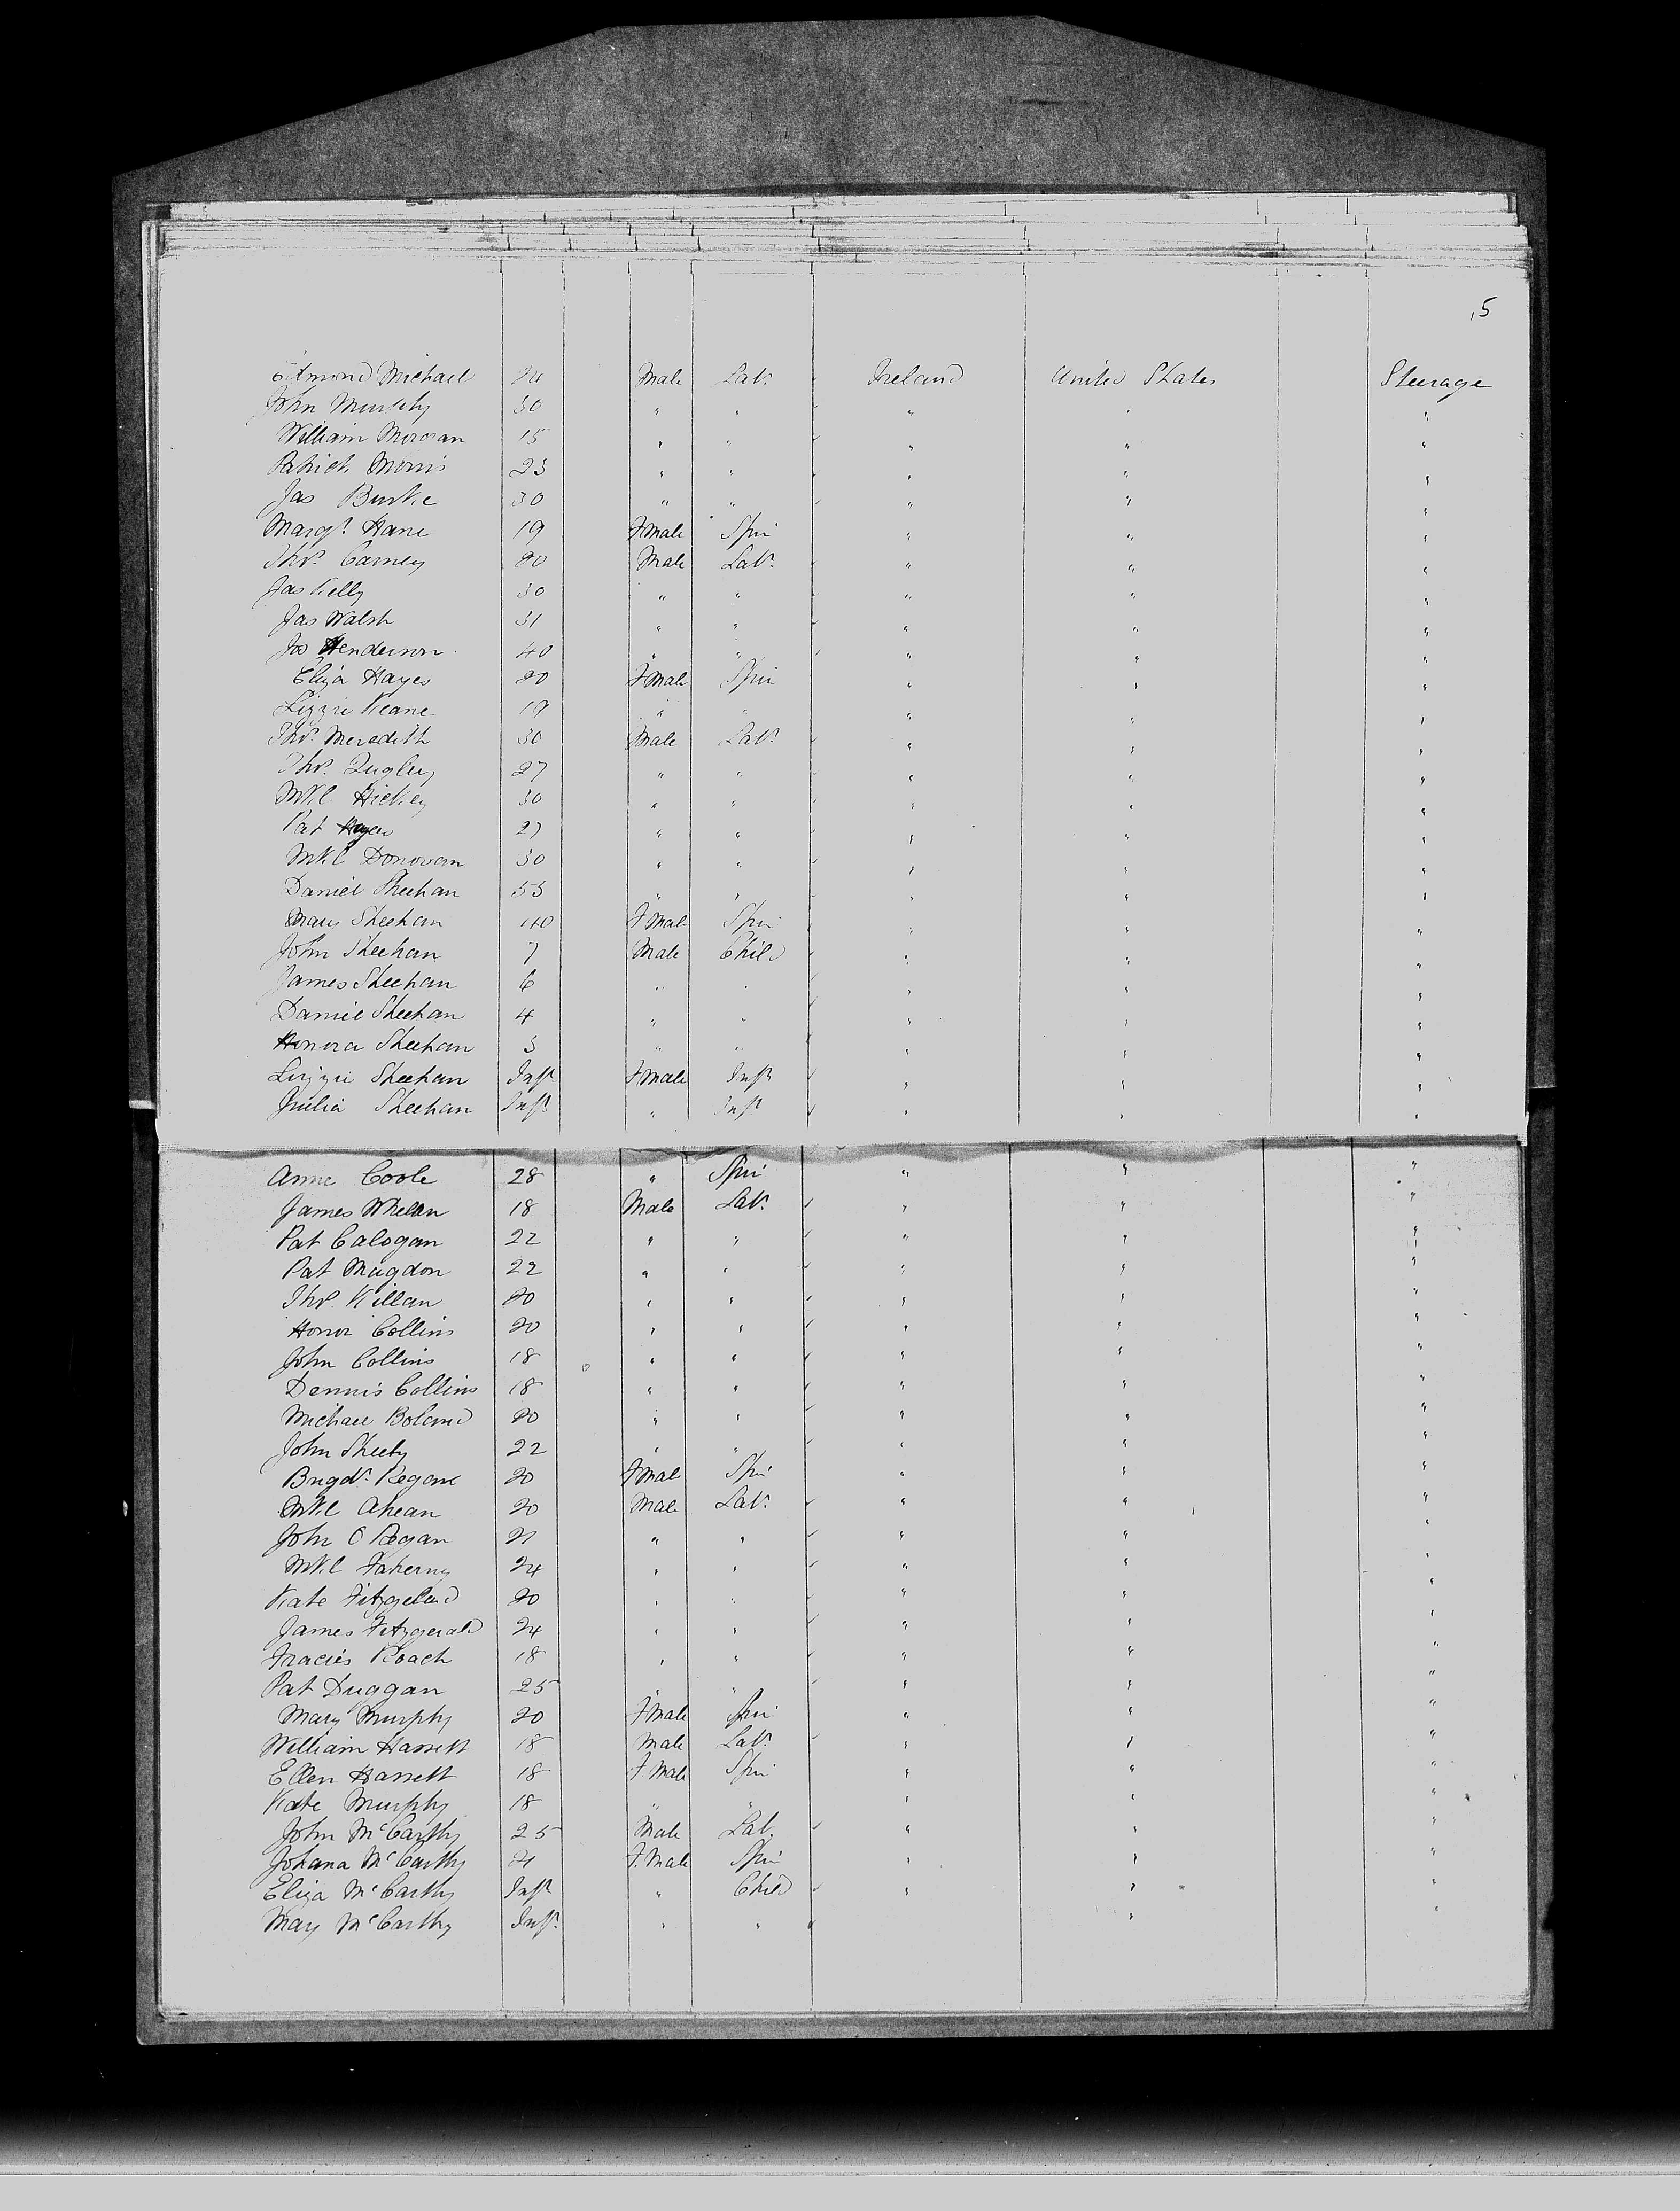 5
Edmond Michael 24 Male Lab. Ireland United States Steerage
John Murphy 30 " " " " "
William Morgan 15 " " " " "
Patrick Morris 23 " " " " "
Jas Burke 30 " " " " "
Margt. Hane 19 Fmale Spin " " "
Thos. Carney 20 Male Lab. " " "
Jas Kelly 30 " " " " "
Jas Walsh 31 " " " " "
Jos Henderson 40 " " " " "
Eliza Hayes 20 Fmale Spin " " "
Lizzie Keane 19 " " " " "
Thos. Meredith 30 Male Lab. " " "
Thos. Qugley 27 " " " " "
Mkl Hickey 30 " " " " "
Pat 27 " " " " "
Mkl Donovan 30 " " " " "
Daniel Sheehan 55 " " " " "
Mary Sheehan 40 Fmale Spin " " "
John Sheehan 7 Male Child " " "
James Sheehan 6 " " " " "
Daniel Sheehan 4 " " " " "
Honora Sheehan 3 " " " " "
Lizzie Sheehan Inft. Fmale Inft " " "
Julia Sheehan Inft. " Inft " " "
Anne Coole 28 " Spin " " "
James Whelan 18 Male Lab. " " "
Pat Calogan 22 " " " " "
Pat Magdon 22 " " " " "
Thos. Killan 20 " " " " "
Honor Collins 20 " " " " "
John Collins 18 " " " " "
Dennis Collins 18 " " " " "
Michael Boland 20 " " " " "
John Sheehy 22 " " " " "
Brigdt. Regone 20 Fmale Spin " " "
Mkl Ahean 20 Male Lab. " " "
John O Regan 21 " " " " "
Mkl Faherny 24 " " " " "
Kate Fitzgelad 20 " " " " "
James Fitzgerald 24 " " " " "
Fracies Roach 18 " " " " "
Pat Duggan 25 " " " " "
Mary Murphy 20 Fmale Spin " " "
William Harnett 18 Male Lab. " " "
Ellen Harnett 18 F.Male Spin " " "
Kate Murphy 18 " " " " "
John McCarthy 25 Male Lab. " " "
Johana McCarthy 21 F.Male Spin " " "
Eliza McCarthy Inft " Child " " "
Mary McCarthy Inft. " " " "